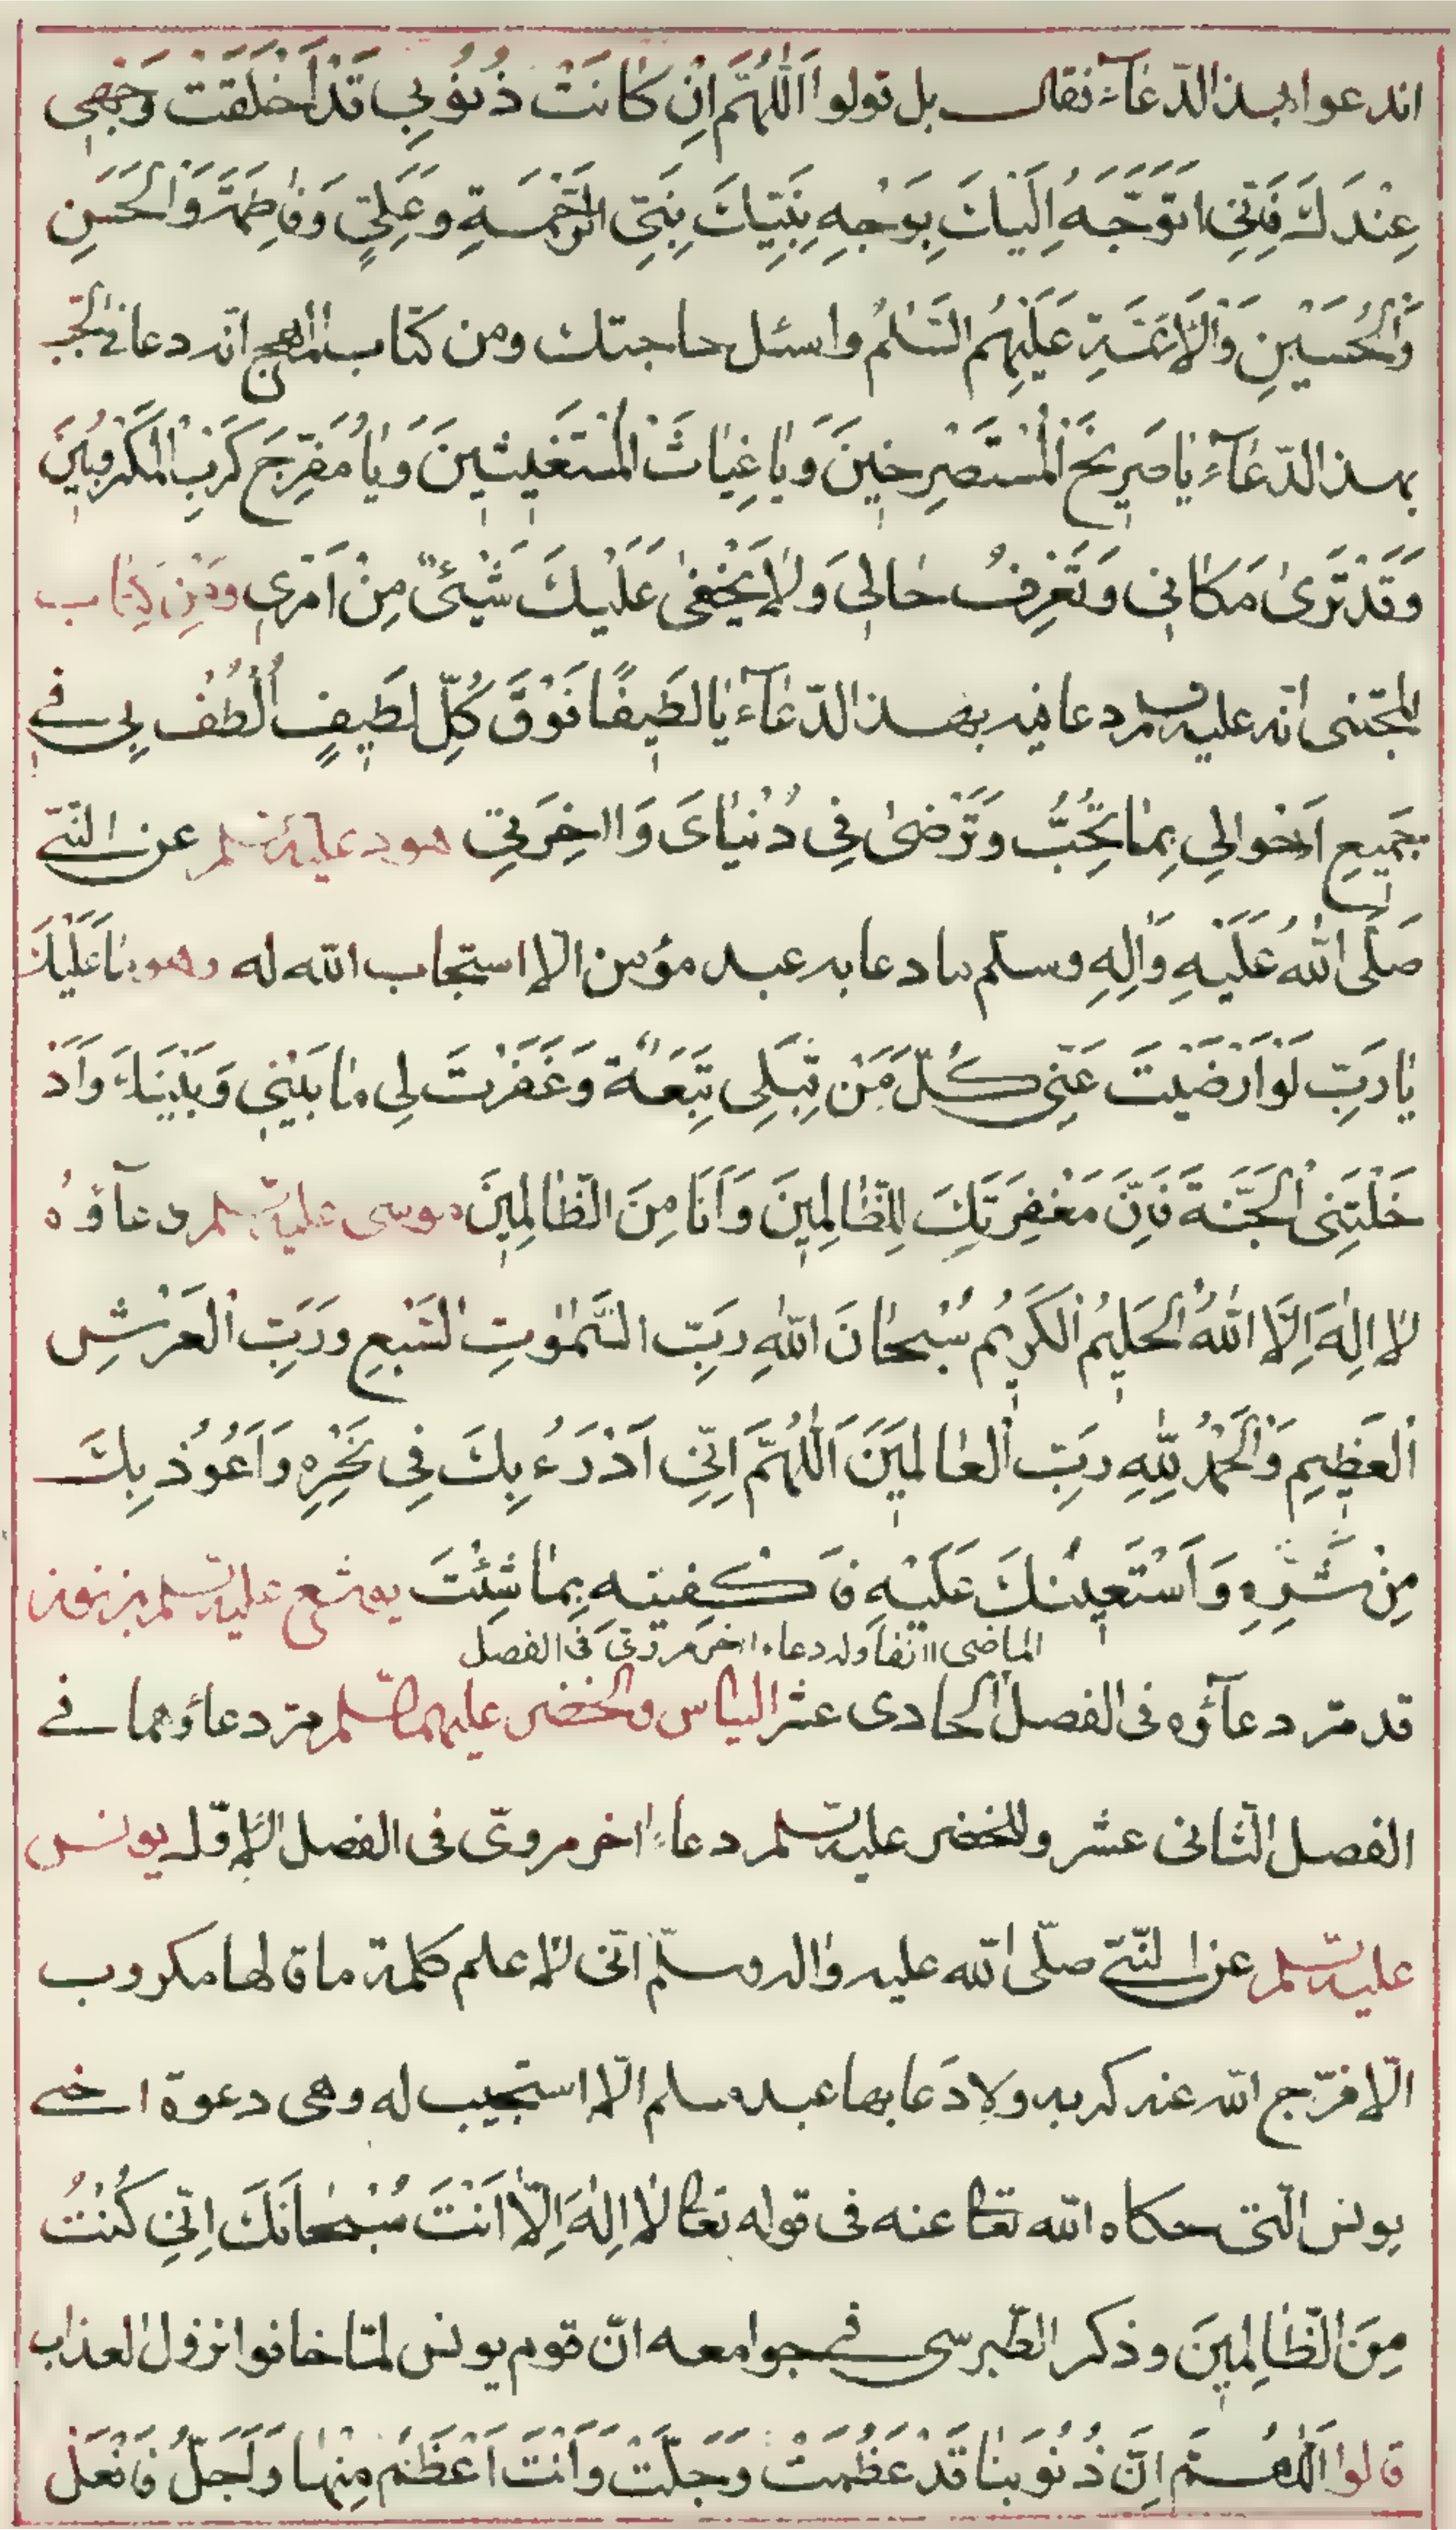 اندعوا بهذا الدّعآء فقال بل قولوا اَللّٰهُمَّ اِنْ كَانَتْ ذُنُوبِي قَدْ اَخْلَقَتْ وَجْهِي
عِنْدَكَ فَاِنِّي اَتَوَجَّهُ اِلَيْكَ بِوَجْهِ نَبِيِّكَ نَبِيِّ الرَّحْمَةِ وَعَلِيٍّ وَفَاطِمَةَ وَالْحَسَنِ
وَالْحُسَيْنِ وَالْاَئِمَّةِ عَلَيْهِمُ السَّلٰمُ واسئل حاجتك ومن كتاب المهج انّه دعا في الجبّ
بهذا الدّعَآءِ يَا صَرِيخَ الْمُسْتَصْرِخِينَ وَيَا غِيَاثَ الْمُسْتَغِيثِينَ وَيَا مُفَرِّجَ كَرْبِ الْمَكْرُوبِينَ
وَقَدْ تَرَىٰ مَكَانِي وَتَعْرِفُ حَالِي وَلَا يَخْفَىٰ عَلَيْكَ شَيْئٌ مِنْ اَمْرِي ومن كتاب
المجتنى انّه عليه السلم دعا فيه بهذا الدّعَآءِ يَا لَطِيفًا فَوْقَ كُلِّ لَطِيفٍ اُلْطُفْ بِي فِي
جَمِيعِ اَحْوَالِي بِمَا تُحِبُّ وَتَرْضَىٰ فِي دُنْيَايَ وَاٰخِرَتِي هود عليه السلم عن النّبيّ
صَلَّى اللّٰهُ عَلَيْهِ وَاٰلِهِ وسلّم ما دعا به عبد مؤمن الا استجاب الله له وهو مَا عَلَيْكَ
يَا رَبِّ لَوْ اَرْضَيْتَ عَنِّي كُلَّ مَنْ قِبَلِي تَبِعَةٌ وَغَفَرْتَ لِي مَا بَيْنِي وَبَيْنَكَ وَاَدْ
خَلْتَنِي الْجَنَّةَ فَاِنَّ مَغْفِرَتَكَ لِلظَّالِمِينَ وَاَنَا مِنَ الظَّالِمِينَ موسى عليه السّلم دعآؤُه
لَا اِلٰهَ اِلَّا اللّٰهُ الْحَلِيمُ الْكَرِيمُ سُبْحَانَ اللّٰهِ رَبِّ السَّمٰوٰتِ السَّبْعِ وَرَبِّ الْعَرْشِ
الْعَظِيمِ وَالْحَمْدُ لِلّٰهِ رَبِّ الْعَالَمِينَ اَللّٰهُمَّ اِنِّي اَدْرَءُ بِكَ فِي نَحْرِهِ وَاَعُوذُ بِكَ
مِنْ شَرِّهِ وَاَسْتَعِينُكَ عَلَيْهِ فَاكْفِنِيهِ بِمَا شِئْتَ يوشع عليه السّلم بن نون
الماضى انفا وله دعاء اخر مروىّ فى الفصل
قد مرّ دعآؤه فى الفصل الحادى عشر الياس والخضر عليهما السّلم مرّ دعاؤهما في
الفصل الثّانى عشر وللخضر عليه السّلم دعاء اخر مروىّ فى الفصل الاوّل يونس
عليه السّلم عن النّبيّ صلّى الله عليه واله وسلّم انّى لاعلم كلمة ما قالها مكروب
الّا فرّج الله عنه كربه ولا دَعا بها عبد مسلم الّا استجيب له وهى دعوة اخي
يونس الّتى حكاه الله تعا عنه فى قوله تعا لَا اِلٰهَ اِلَّا اَنْتَ سُبْحَانَكَ اِنِّي كُنْتُ
مِنَ الظَّالِمِينَ وذكر الطّبرسى في جوامعه انّ قوم يونس لمّا خافوا نزول العذاب
قالوا اَللّٰهُمَّ اِنَّ ذُنُوبَنَا قَدْ عَظُمَتْ وَجَلَّتْ وَاَنْتَ اَعْظَمُ مِنْهَا وَاَجَلُّ فَافْعَلْ